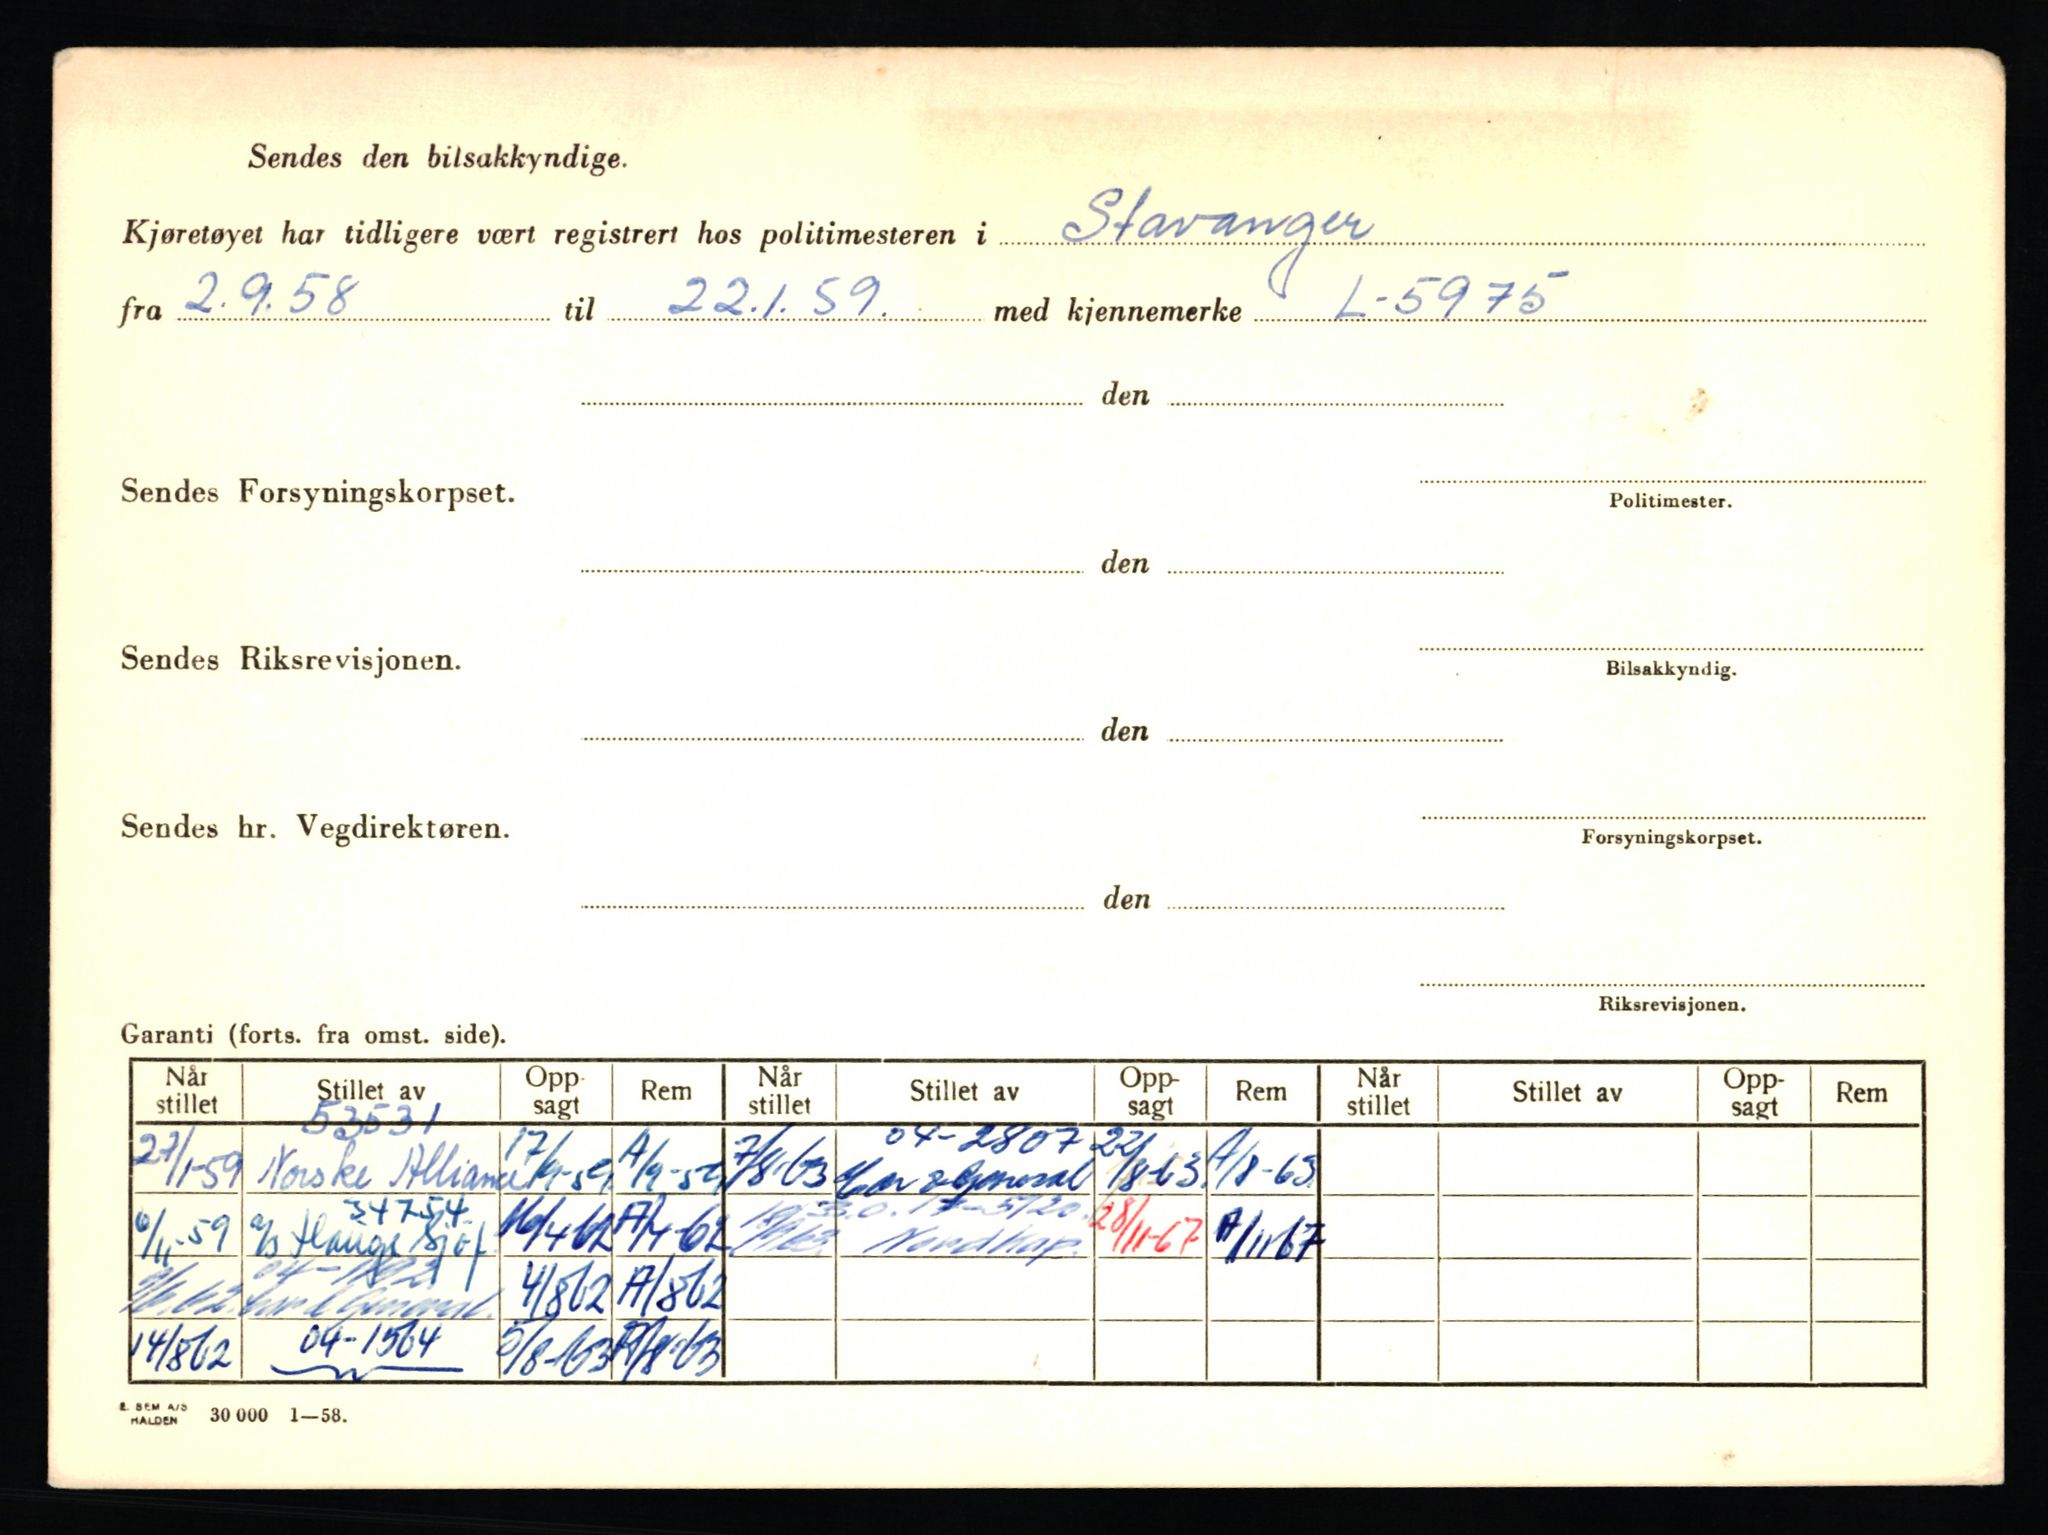 Sendes den bilsakkyndige.
Kjøretøyet har tidligere vært registrert hos politimesteren i Stavanger
fra 2.9.58 til 22.1.59. med kjennemerke L-5975
den
Sendes Forsyningskorpset.
Politimester.
den
Sendes Riksrevisjonen.
Bilsakkyndig.
den
Sendes hr. Vegdirektøren.
Forsyningskorpset.
den
Riksrevisjonen.
Garanti (forts. fra omst. side).
Når stillet Stillet av Opp-sagt Rem Når stillet Stillet av Opp-sagt Rem Når stillet Stillet av Opp-sagt Rem
53531 04-2807
27/1-59 Norske Alliance 17/9-59 A/9-59 7/8-63 General 22/8-63 A/8-63
34754
6/11-59 16/4-62 A/4-62 Nordkap. 28/11-67 A/11-67
General. 4/8-62 A/8-62
14/8-62 04-1564 5/8-63 A/8-63
E. SEM A/S
HALDEN 30 000 1—58.